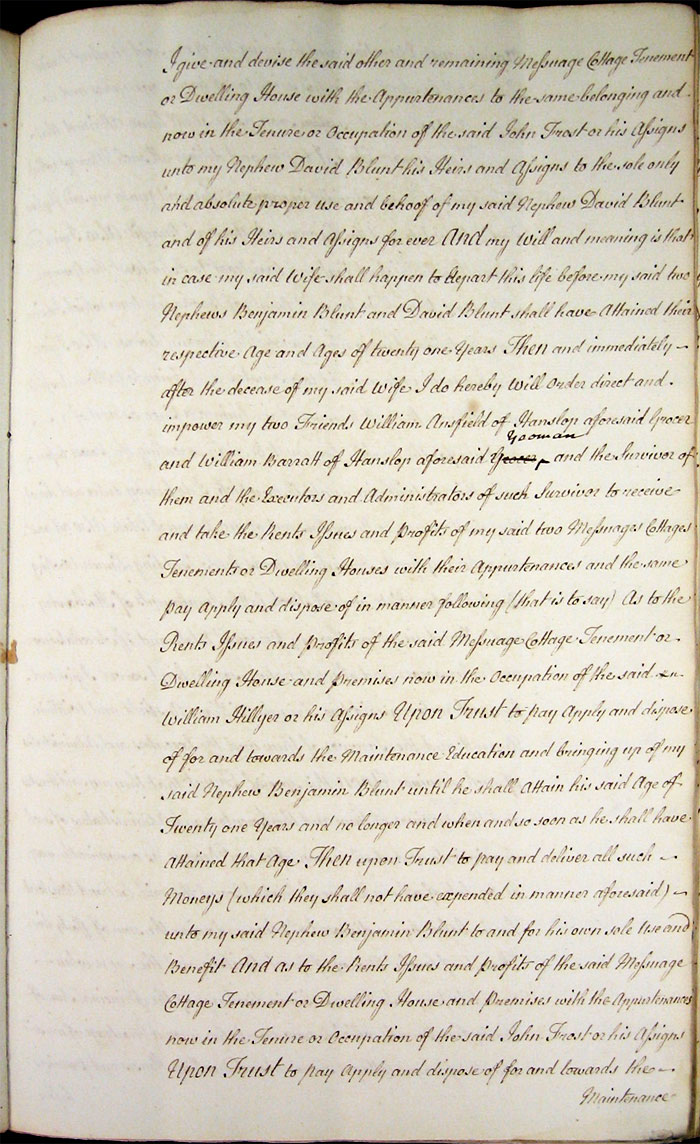 I give and devise the said other and remaining Meſsuage Cottage Tenement
or Dwelling House with the Appurtenances to the same belonging and
now in the Tenure or Occupation of the said John Frost or his Aſsigns
unto my Nephew David Blunt his Heirs and Aſsigns to the sole only
and absolute proper use and behoof of my said Nephew David Blunt
and of his Heirs and Aſsigns for ever And my Will and meaning is that
in case my said Wife shall happen to depart this life before my said two
Nephews Benjamin Blunt and David Blunt shall have Attained their
respective Age and Ages of twenty one Years Then and immediately
after the decease of my said Wife I do hereby Will Order direct and
impower my two Friends William Ansfield of Hanslop aforesaid Grocer
Yeoman
and William Barratt of Hanslop aforesaid Grocer, and the Survivor of
them and the Executors and Administrators of such Survivor to receive
and take the Rents Iſsues and Profits of my said two Meſsuages Cottages
Tenements or Dwelling Houses with their Appurtenances and the same
pay Apply and dispose of in manner following (that is to say) As to the
Rents Iſsues and Profits of the said Meſsuage Cottage Tenement or
Dwelling House and Premises now in the Occupation of the said
William Hillyer or his Aſsigns Upon Trust to pay Apply and dispose
of for and towards the Maintenance Education and bringing up of my
said Nephew Benjamin Blunt until he shall Attain his said Age of
Twenty one Years and no longer and when and so soon as he shall have
Attained that Age Then upon Trust to pay and deliver all such
Moneys (which they shall not have expended in manner aforesaid)
unto my said Nephew Benjamin Blunt to and for his own sole Use and
Benefit And as to the Rents Iſsues and Profits of the said Meſsuage
Cottage Tenement or Dwelling House and Premises with the Appurtenances
now in the Tenure or Occupation of the said John Frost or his Aſsigns
Upon Trust to pay Apply and dispose of for and towards the
Maintenance